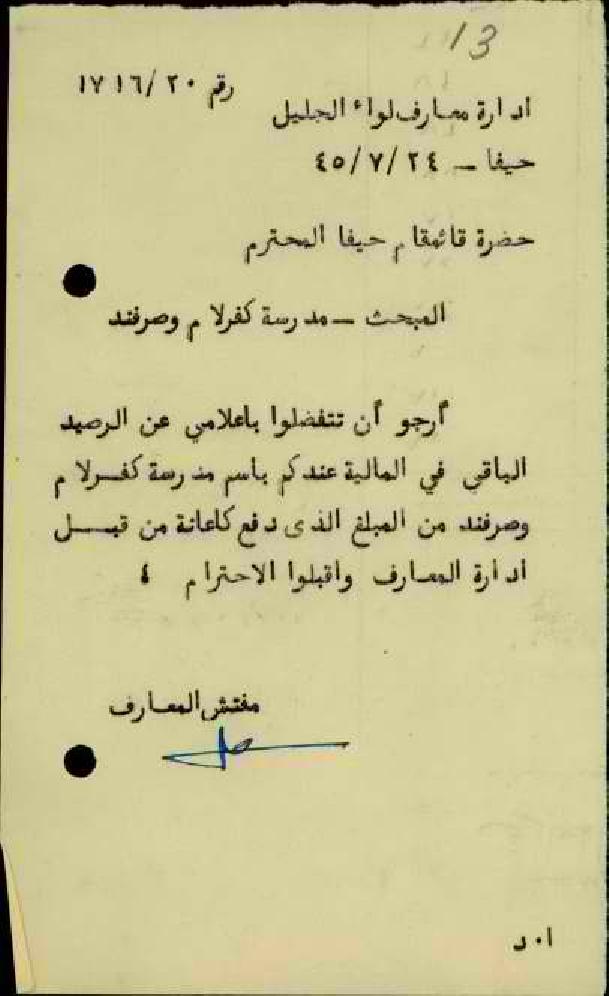 13
رقم ١٧١٦/٢٠
ادارة معارف لواء الجليل
حيفا ــ ٤٥/٧/٢٤
حضرة قائمقام حيفا المحترم
المبحث ــ مدرسة كفرلام وصرفند
أرجو أن تتفضلوا باعلامي عن الرصيد
الباقي في المالية عندكم باسم مدرسة كفـرلام
وصرفند من المبلغ الذى دفع كاعانة من قبـــل
ادارة المعارف واقبلوا الاحترام ؛
مفتش المعارف
ا٠د